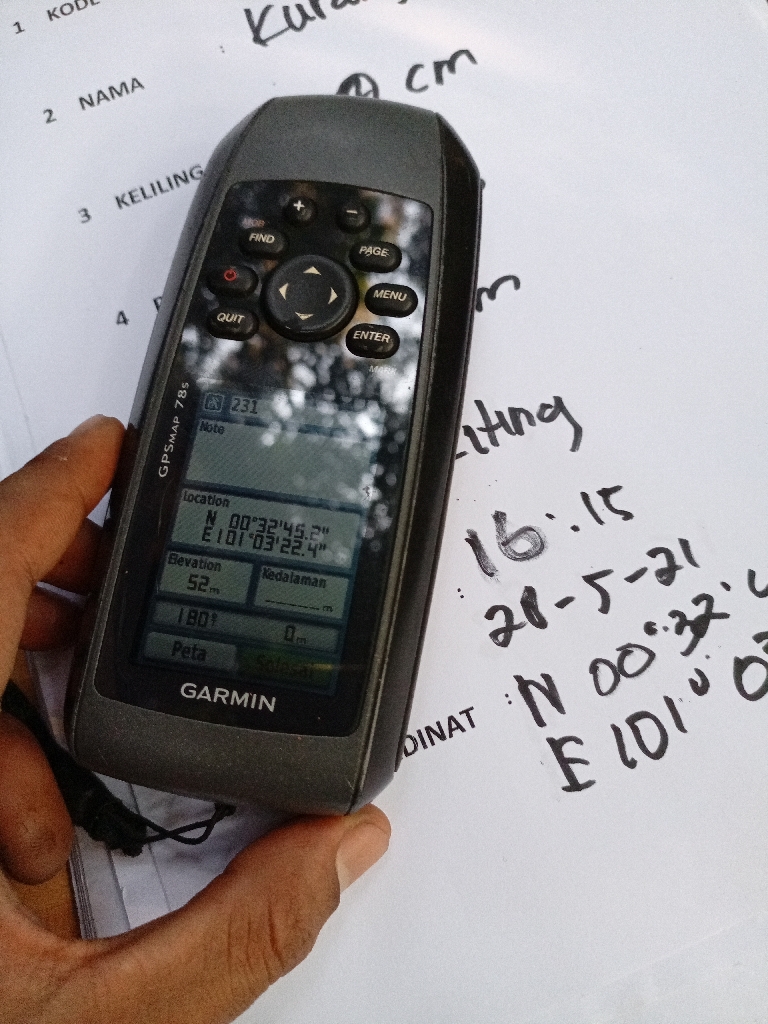 1 KODE
2 NAMA :
cm
3 KELILING
4
m
16:15
28-5-21
DINAT : N 00° 32'
E 101° 0
+ -
MOB
FIND
PAGE
MENU
QUIT
ENTER
MARK
GPSMAP 78s
231
Note
Location
N 00°32'45.2"
E101°03'22.4"
Elevation
52m
Kedalaman
_______m
180°
0m
Peta
Selesai
GARMIN